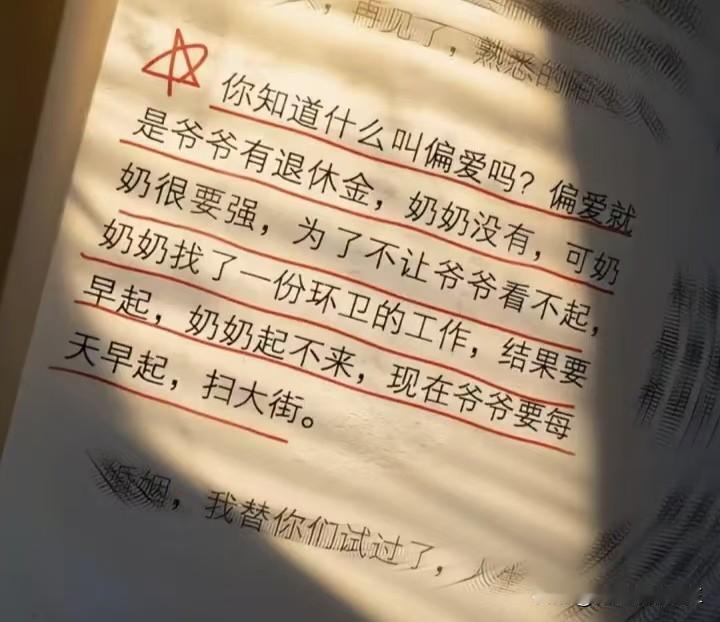 再见了，熟悉的陌生
你知道什么叫偏爱吗？偏爱就
是爷爷有退休金，奶奶没有，可奶
奶很要强，为了不让爷爷看不起，
奶奶找了一份环卫的工作，结果要
早起，奶奶起不来，现在爷爷要每
天早起，扫大街。
婚姻，我替你们试过了，人生